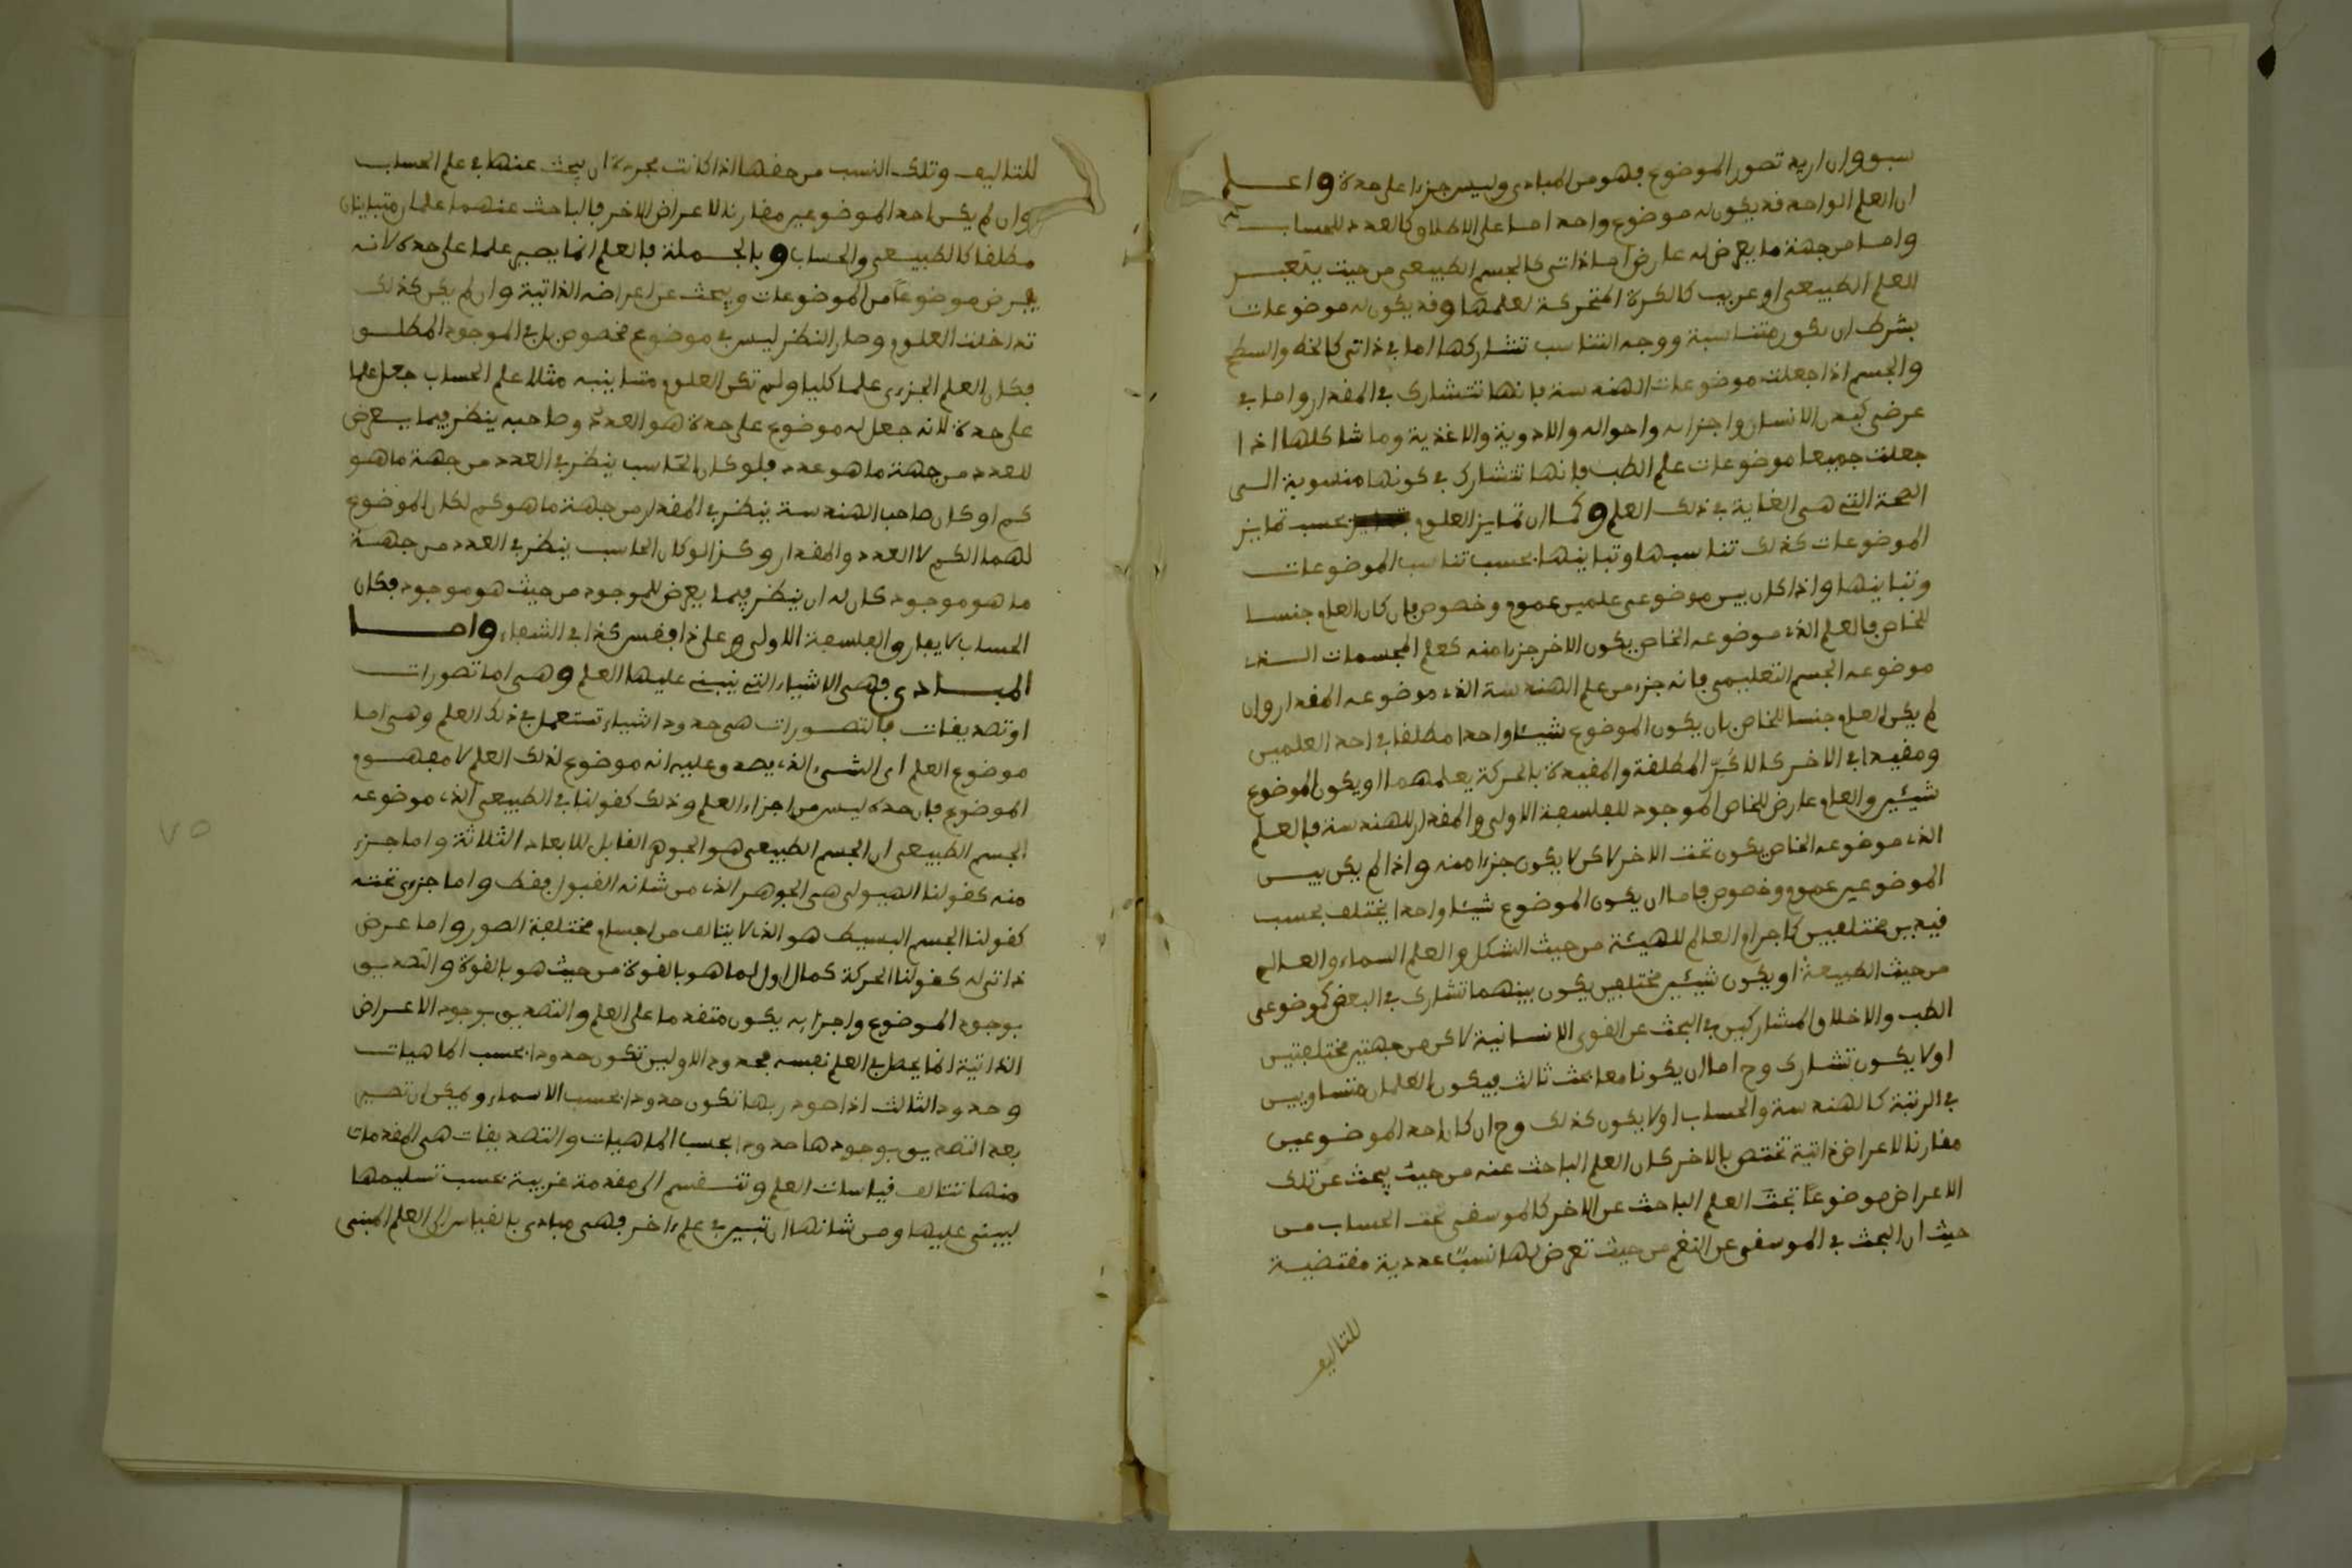 سبق وان اريد تصور الموضوع فهو من المبادى وليس جزءا على حدة واعلم
ان العلم الواحد قد يكون له موضوع واحد اما على الاطلاق كالعدد للحساب
واما من جهة ما يعرض له عارض اما ذاتى كالجسم الطبيعى من حيث يتغير
للعلم الطبيعى او غريب كالكرة المتحركة لعلمها وقد يكون له موضوعات
بشرط ان تكون متناسبة ووجه التناسب تشاركها اما فى ذاتى كالخط والسطح
والجسم اذا جعلت موضوعات الهندسة فانها تتشارك فى المقدار واما فى
عرضى كبدن الانسان واجزائه واحواله والادوية والاغذية وما شاكلها اذا
جعلت جميعا موضوعات علم الطب فانها تتشارك فى كونها منسوبة الى
الصحة التى هى الغاية فى ذلك العلم وكما ان تمايز العلوم بحسب تمايز
الموضوعات كذلك تناسبها وتباينها بحسب تناسب الموضوعات
وتباينها واذا كان بين موضوعى علمين عموم وخصوص فان كان العام جنسا
للخاص فالعلم الذى موضوعه الخاص يكون الاخر جزءا منه كعلم المجسمات الذى
موضوعه الجسم التعليمى فانه جزء من علم الهندسة الذى موضوعه المقدار وان
لم يكن العام جنسا للخاص بان يكون الموضوع شيئا واحدا مطلقا فى احد العلمين
ومقيدا فى الاخر كالاكر المطلقة والمقيدة بالحركة بعلمهما او يكون الموضوع
شيئين والعام عارض للخاص الموجود للفلسفة الاولى والمقدار للهندسة فالعلم
الذى موضوعه الخاص يكون تحت الاخر لاكن لا يكون جزءا منه واذا لم يكن بين
الموضوعين عموم وخصوص فاما ان يكون الموضوع شيئا واحدا يختلف بحسب
قيدين مختلفين كاجرام العالم للهيئة من حيث الشكل والعلم السماء والعالم
من حيث الطبيعة او يكون شيئين مختلفين يكون بينهما تشارك فى البعض كموضوعى
الطب والاخلاق المشاركين فى البحث عن القوى الانسانية لاكن من جهتين مختلفتين
اولا يكون تشارك وح اما ان يكونا معا تحت ثالث فيكون العلمان متساويين
فى الرتبة كالهندسة والحساب اولا يكون كذلك وح ان كان احد الموضوعين
مقارنا لاعراض ذاتية تختص بالاخر كان العلم الباحث عنه من حيث يبحث عن تلك
الاعراض موضوعا تحت العلم الباحث عن الاخر كالموسقى تحت الحساب من
حيث ان البحث فى الموسقى عن النغم من حيث تعرض لها نسب عددية مقتضية
للتاليف
للتاليف وتلك النسب من حقها اذا كانت مجردة ان يبحث عنها فى علم الحساب
وان لم يكن احد الموضوعين مقارنا لاعراض الاخر فالباحث عنهما علمان متباينان
مطلقا كالطبيعى والحساب وبالجملة فالعلم انما يصير علما على حدة لانه
يفرض موضوعا من الموضوعات ويبحث عن اعراضه الذاتية وان لم يكن كذلك
تداخلت العلوم وصار النظر ليس فى موضوع مخصوص بل فى الموجود المطلق
فكان العلم الجزءى علما كليا ولم تكن العلوم متباينة مثلا علم الحساب جعل علما
على حدة لانه جعل له موضوع على حدة هو العدد وصاحبه ينظر فيما يعرض
للعدد من جهة ما هو عدد فلو كان الحاسب ينظر فى العدد من جهة ما هو
كم او كان صاحب الهندسة ينظر فى المقدار من جهة ما هو كم لكان الموضوع
لهما الكم لا العدد والمقدار وكذا لو كان الحاسب ينظر فى العدد من جهة
ما هو موجود كان له ان ينظر فيما يعرض للموجود من حيث هو موجود فكان
الحساب لا يفارق الفلسفة الاولى وعلى ذا فقس كذا فى الشفاء واما
المبادى فهى الاشياء التى ينبنى عليها العلم وهى اما تصورات
او تصديقات فالتصورات هى حدود اشياء تستعمل فى ذلك العلم وهى اما
موضوع العلم اى الشىء الذى يصدق عليه انه موضوع لذلك العلم لا مفهوم
الموضوع فان حده ليس من اجزاء العلم وذلك كقولنا فى الطبيعى الذى موضوعه
الجسم الطبيعى ان الجسم الطبيعى هو الجوهر القابل للابعاد الثلاثة واما جزء
منه كقولنا الهيولى هى الجوهر الذى من شانه القبول فقط واما جزءى تحته
كقولنا الجسم البسيط هو الذى لا يتالف من اجسام مختلفة الصور واما عرض
ذاتى له كقولنا الحركة كمال اول لما هو بالقوة من حيث هو بالقوة والتصديق
بوجود الموضوع واجزائه يكون متقدما على العلم والتصديق بوجود الاعراض
الذاتية انما يحصل فى العلم نفسه فحدود الاولين تكون حدودا بحسب الماهيات
وحدود الثالث اذا صودر بها تكون حدودا بحسب الاسماء ويمكن ان تصير
بعد التصديق بوجودها حدودا بحسب الماهيات والتصديقات هى المقدمات
منها تتالف قياسات العلم وتنقسم الى مقدمة غريبة بحسب تسليمها
ليبنى عليها ومن شانها ان تبين فى علم اخر فهى مبادى بالقياس الى العلم المبنى
٧٥